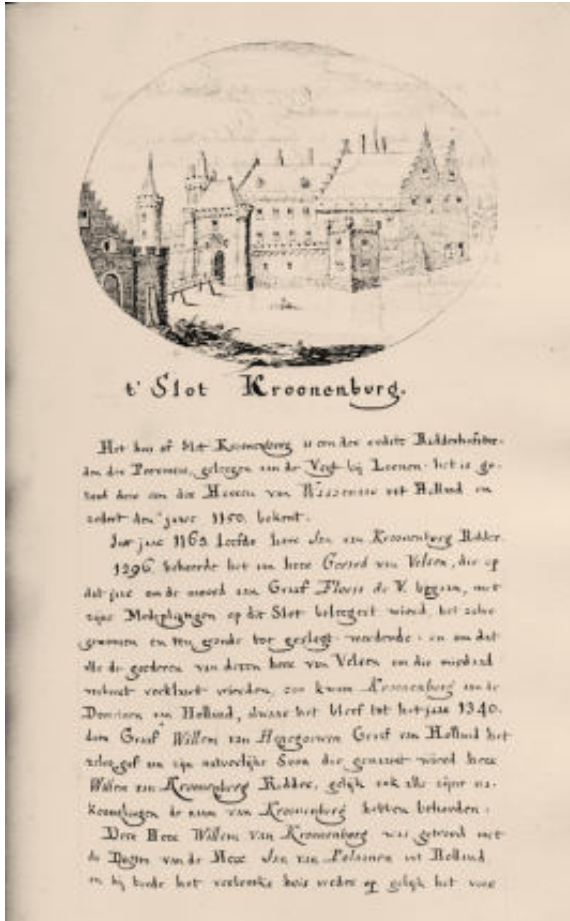 t' Slot Kroonenburg.
Het huis of Slot Kroonenburg is een der oudste Ridderhofste-
den der Provincie, geleegen aan de Vegt bij Loenen. het is ge-
door een der Heeren van Wassenaer uit Holland en
zedert den jaare 1150. bekent.
Int jaar 1163 leefde heer Jan van Kroonenburg Ridder.
1296. behoorde het aan heer Geerard van Velsen, die op
dat jaar om de moord aan Graaf Floris de V. begaan, met
zijne Medepligtigen op dit Slot beleegert wierd, het zelve
gewonnen en ten gronde toe geslegt werdende. en om dat
alle de goederen van dezen heer van Velsen om die misdaad
verbeurt verklaart wierden, zoo kwam Kroonenburg aan de
Domeinen van Holland, alwaar het bleef tot het jaar 1340.
dan Graaf Willem van Henegouwen Graaf van Holland het
zelve gaf aan zijn natuurlijke Soon die genaamt wierd heer
Willem van Kroonenburg Ridder, gelijk ook alle zijne na-
koomelingen de naam van Kroonenburg hebben behouden.
Deze Heer Willem van Kroonenburg was getrouwd met
de Dogter van de Heer Jan van Polanen uit Holland
en hij bouwde het verbrande huis weder op gelijk het voor